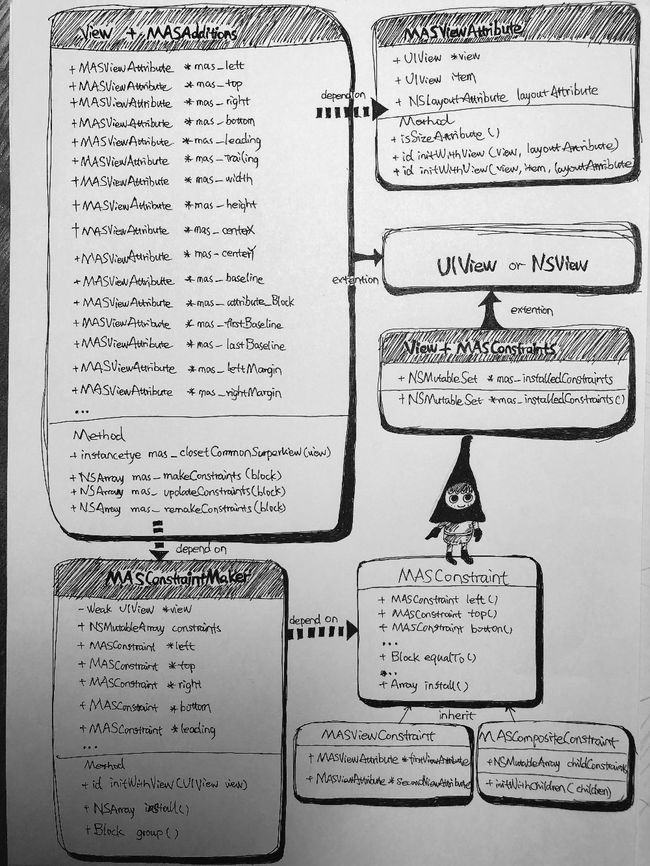 View + MASAdditions
+ MASViewAttribute * mas_left
+ MASViewAttribute * mas_top
+ MASViewAttribute * mas_right
+ MASViewAttribute * mas_bottom
+ MASViewAttribute * mas_leading
+ MASViewAttribute * mas_trailing
+ MASViewAttribute * mas_width
+ MASViewAttribute * mas_height
+ MASViewAttribute * mas_centerX
+ MASViewAttribute * mas_centerY
+ MASViewAttribute * mas_baseline
+ MASViewAttribute * mas_attribute_Block
+ MASViewAttribute * mas_firstBaseline
+ MASViewAttribute * mas_lastBaseline
+ MASViewAttribute * mas_leftMargin
+ MASViewAttribute * mas_rightMargin
...
Method
+ instancetye mas_closetCommonSuperView(view)
+ NSArray mas_makeConstraints(block)
+ NSArray mas_updateConstraints(block)
+ NSArray mas_remakeConstraints(block)
depend on
MASViewAttribute
+ UIView *view
+ UIView item
+ NSLayoutAttribute layoutAttribute
Method
+ isSizeAttribute()
+ id initWithView(view, layoutAttribute)
+ id initWithView(view, item, layoutAttribute
extention
UIView or NSView
extention
View + MASConstraints
+ NSMutableSet *mas_installedConstraints
+ NSMutableSet *mas_installedConstraints()
depend on
MASConstraintMaker
- Weak UIView *view
+ NSMutableArray constraints
+ MASConstraint *left
+ MASConstraint *top
+ MASConstraint *right
+ MASConstraint *bottom
+ MASConstraint *leading
...
Method
+ id initWithView(UIView view)
+ NSArray install()
+ Block group()
depend on
MASConstraint
+ MASConstraint left()
+ MASConstraint top()
+ MASConstraint bottom()
...
+ Block equalTo()
...
+ Array install()
inherit
MASViewConstraint
+ MASViewAttribute *firstViewAttribute
+ MASViewAttribute *secondViewAttribute
MASCompositeConstraint
+ NSMutableArray childConstraints
+ initWithChildren(children)